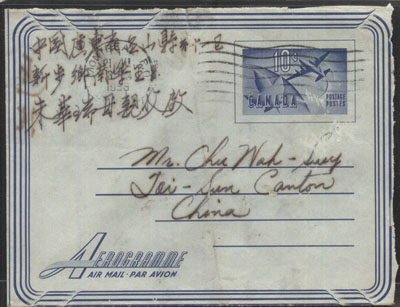 中國廣東省台山縣
新步鄉
朱華瑞母親收啟
10¢
CANADA
POSTAGE
POSTES
Mr. Chu Wah-Suey
Toi-Sun Canton
China
AEROGRAMME
AIR MAIL · PAR AVION